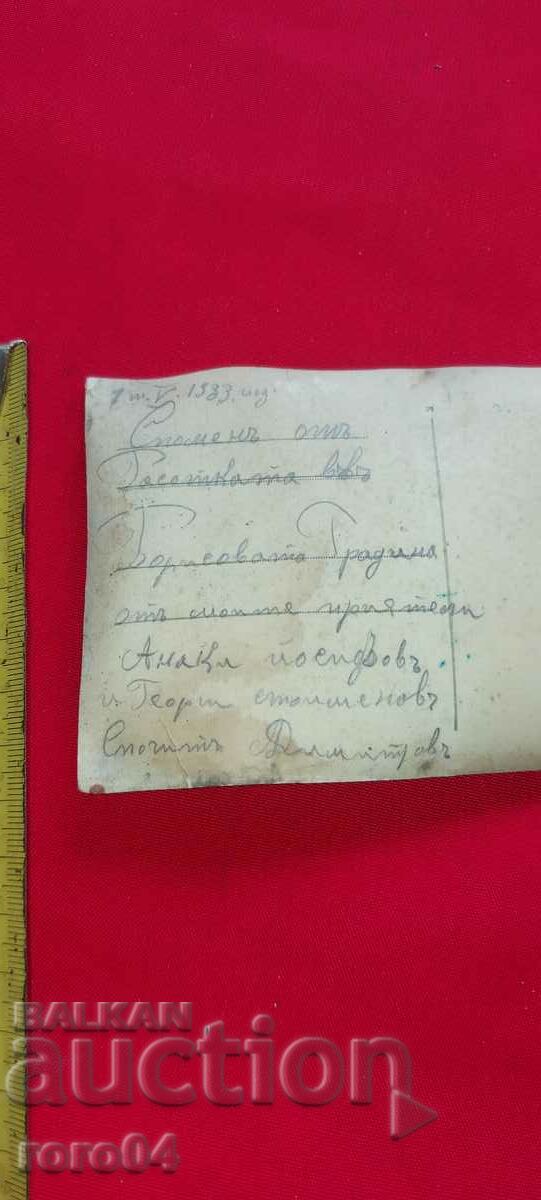 1 т. V. 1933 год.
Споменъ отъ
Гасотката въвъ
Борисовата Градина
отъ моите приятели
Анакл йосифовъ
и Георги стоименовъ
Спочитъ Димитровъ
BALKAN
auction
roro04